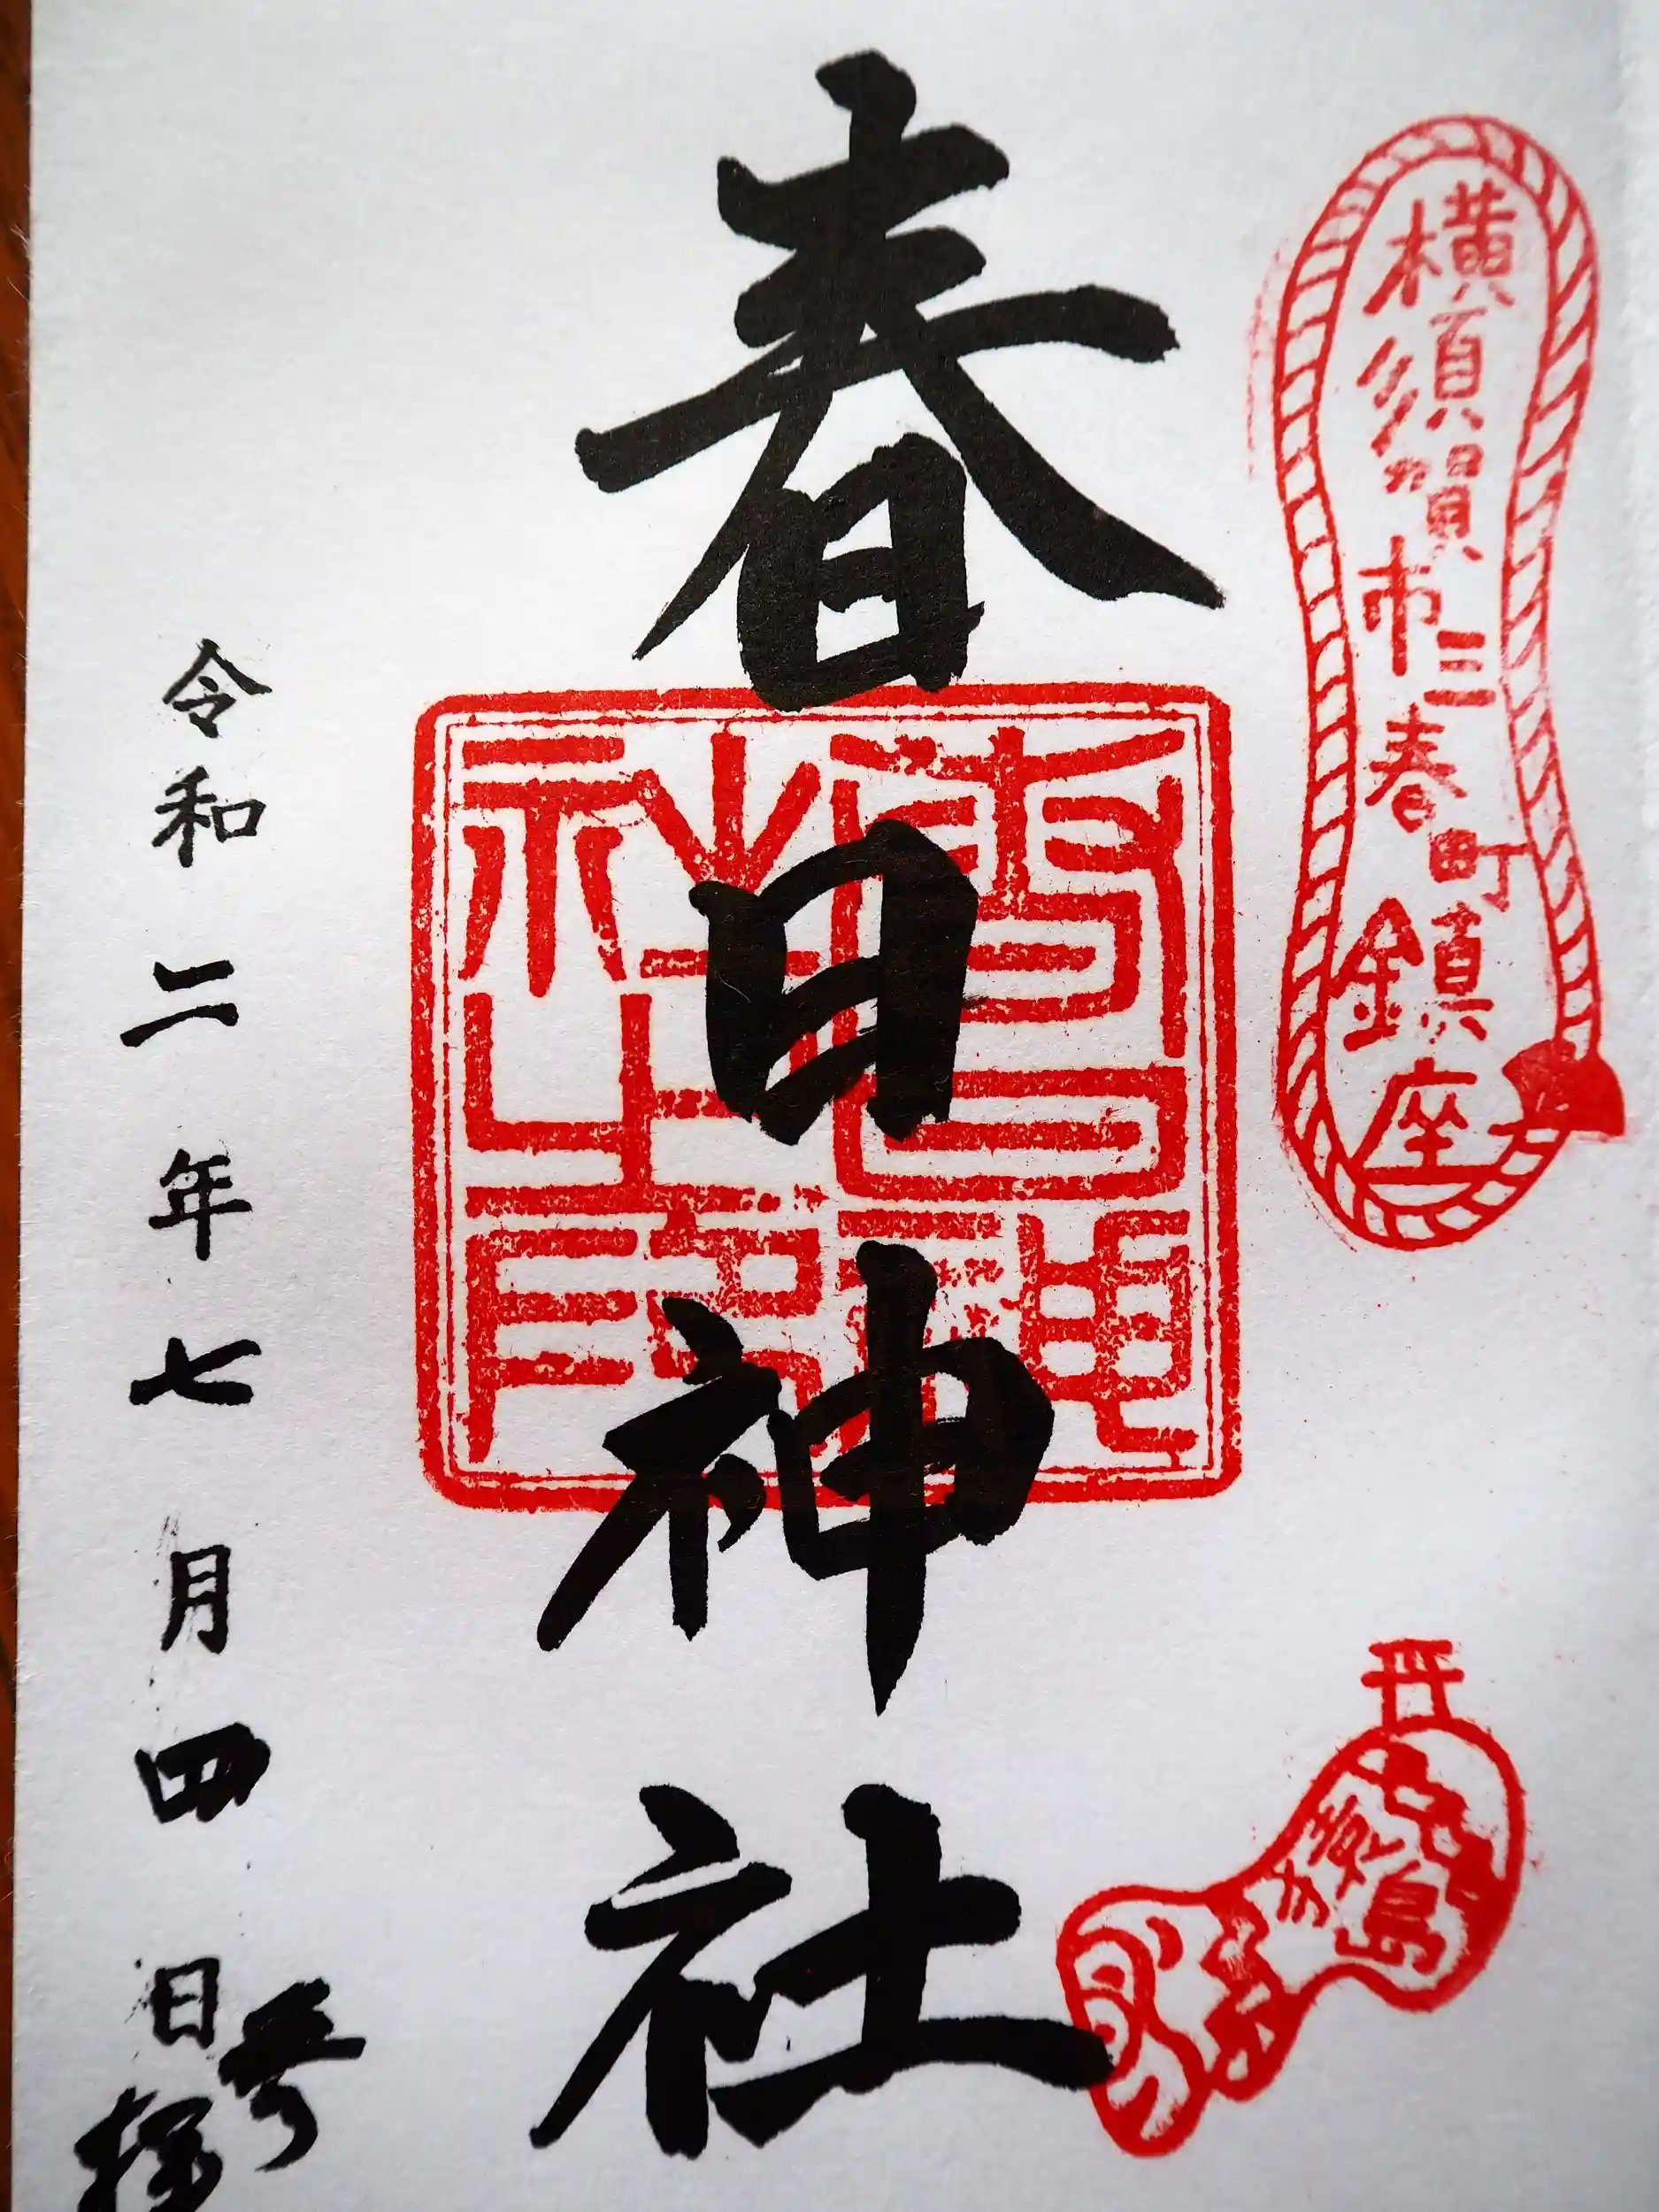 横須賀市三春町鎮座
猿島
春日神社
春日神社之印
令和二年七月四日
奉拝